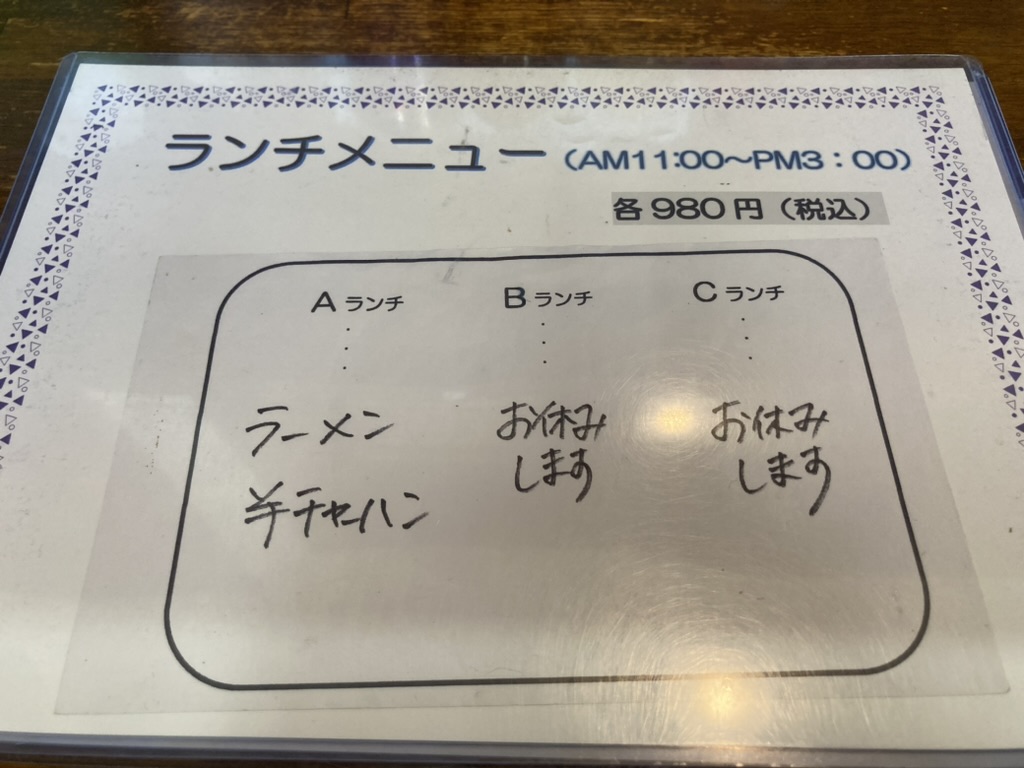 ランチメニュー（AM11:00～PM3：00）
各980円（税込）
Aランチ
ラーメン
半チャーハン
Bランチ
お休み
します
Cランチ
お休み
します